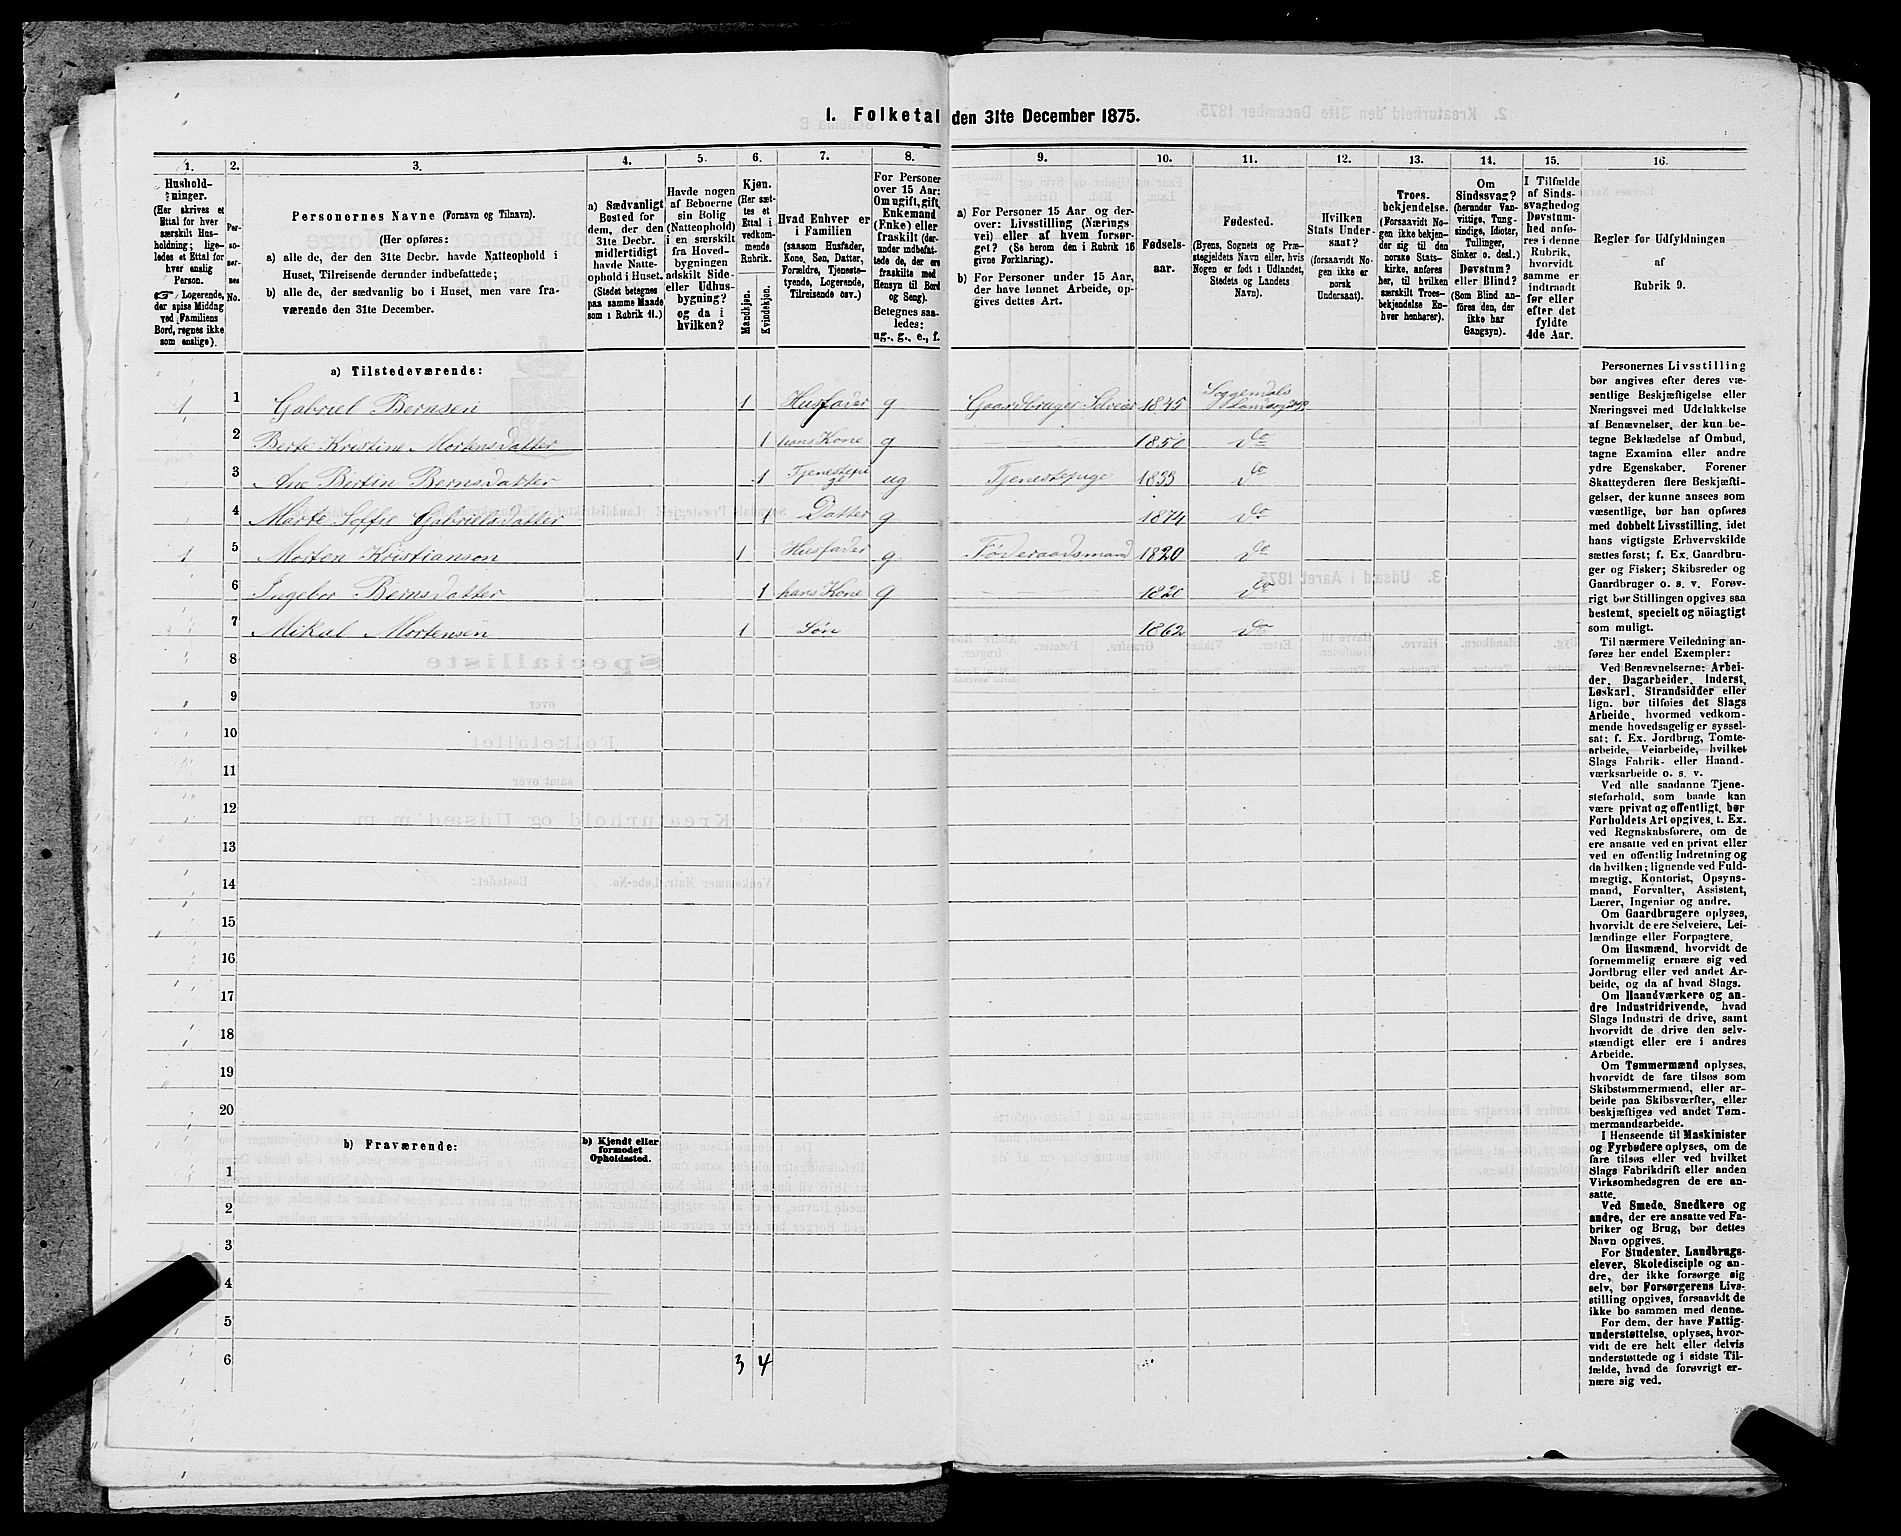 1. Folketal den 31te December 1875.
1.
Hushold-
ninger.
(Her skrives et
Ettal for hver
særskilt Hus-
holdning; lige-
ledes et Ettal for
hver enslig
Person.
☞ Logerende,
der spise Middag
ved Familiens
Bord, regnes ikke
som enslige).
2.
Per-
so-
ner-
nes
No.
3.
Personernes Navne (Fornavn og Tilnavn).
(Her opføres:
a) alle de, der den 31te Decbr. havde Natteophold i
Huset, Tilreisende derunder indbefattede;
b) alle de, der sædvanlig bo i Huset, men vare fra-
værende den 31te December.
4.
a) Sædvanligt
Bosted for
dem, der den
31te Decbr.
midlertidigt
havde Natte-
ophold i Huset.
(Stedet betegnes
paa samme Maade
som i Rubrik 11.)
5.
Havde nogen
af Beboerne
sin Bolig
(Natteophold)
i en særskilt
fra Hoved-
bygningen
adskilt Side-
eller Udhus-
bygning?
og da i
hvilken?
6.
Kjøn.
(Her sæt-
tes et
Ettal i
vedkom-
mende
Rubrik.
Mandkjøn.
Kvindekjøn.
7.
Hvad Enhver er
i Familien
(saasom Husfader,
Kone, Søn, Datter,
Forældre, Tjeneste-
tyende, Logerende,
Tilreisende osv.)
8.
For Personer
over 15 Aar:
Om ugift, gift,
Enkemand
(Enke) eller
fraskilt (der-
under indbefat-
tede de, der ere
fraskilte med
Hensyn til Bord
og Seng).
Betegnes saa-
ledes:
ug., g., e., f.
9.
a) For Personer 15 Aar og der-
over: Livsstilling (Nærings-
vei) eller af hvem forsør-
get? (Se herom den i Rubrik 16
givne Forklaring).
b) For Personer under 15 Aar,
der have lønnet Arbeide, op-
gives dettes Art.
10.
Fødsels-
aar.
11.
Fødested.
(Byens, Sognets og Præ-
stegjeldets Navn eller, hvis
Nogen er født i Udlandet,
Stedets og Landets
Navn).
12.
Hvilken
Stats Under-
saat?
(forsaavidt No-
gen ikke er
norsk
Undersaat).
13.
Troes-
bekjendelse.
(Forsaavidt No-
gen ikke bekjen-
der sig til den
norske Stats-
kirke, anføres
her, til hvilken
særskilt Troes-
bekjendelse En-
hver henhører).
14.
Om
Sindssvag?
(herunder Van-
vittige, Tung-
sindige, Idioter,
Tullinger,
Sinker o. desl.)
Døvstum?
eller Blind?
(Som Blind an-
føres den, der
ikke har
Gangsyn).
15.
I Tilfælde
af Sinds-
svaghed og
Døvstum-
hed anfø-
res i denne
Rubrik,
hvorvidt
samme er
indtraadt
før eller
efter det
fyldte
4de Aar.
16.
Regler for Udfyldningen
af
Rubrik 9.
a) Tilstedeværende:
1 1 Gabriel Bernsen 1 Husfader g Gaardbruger Selveier 1845 Soggendals
2 Berte Kristine Mortensdatter 1 hans Kone g 1850 do
3 Ane Bertin Bernsdatter 1 Tjenestepi
ge ug Tjenestepige 1833 do
4 Marte Soffie Gabrielsdatter 1 Datter g 1874 do
1 5 Morten Kristianson 1 Husfader g. Føderaadsmand 1820 do
6 Ingebor Bernsdatter 1 hans Kone g 1820 do
7 Mikal Mortensen 1 Søn 1862 do
8
9
10
11
12
13
14
15
16
17
18
19
20
b) Fraværende:
b) Kjendt eller
formodet
Opholdssted.
1
2
3
4
5
6 3 4
Personernes Livsstilling
bør angives efter deres væ-
sentlige Beskjæftigelse eller
Næringsvei med Udelukkelse
af Benævnelser, der kun be-
tegne Beklædelse af Ombud,
tagne Examina eller andre
ydre Egenskaber. Forener
Skatteyderen flere Beskjæfti-
gelser, der kunne ansees som
væsentlige, bør han opføres
med dobbelt Livsstilling, idet
hans vigtigste Erhvervskilde
sættes først; f. Ex. Gaardbru-
ger og Fisker; Skibsreder og
Gaardbruger o. s. v. Forøv-
rigt bør Stillingen opgives saa
bestemt, specielt og nöiagtigt
som muligt.
Til nærmere Veiledning an-
føres her endel Exempler:
Ved Benævnelserne: Arbei-
der, Dagarbeider, Inderst,
Løskarl, Strandsidder eller
lign. bør tilføies det Slags
Arbeide, hvormed vedkom-
mende hovedsagelig er syssel-
sat; f. Ex. Jordbrug, Tomte-
arbeide, Veiarbeide, hvilket
Slags Fabrik- eller Haand-
værksarbeide o. s. v.
Ved alle saadanne Tjene-
steforhold, som baade kan
være privat og offentligt, bør
Forholdets Art opgives, t. Ex.
ved Regnskabsførere, om de
ere ansatte ved en privat eller
ved en offentlig Indretning og
da hvilken; lignende ved Fuld-
mægtig, Kontorist, Opsyns-
mand, Forvalter, Assistent,
Lærer, Ingeniør og andre.
Om Gaardbrugere oplyses,
hvorvidt de ere Selveiere, Lei-
lændinge eller Forpagtere.
Om Husmænd, hvorvidt de
fornemmelig ernære sig ved
Jordbrug eller ved andet Ar-
beide, og da af hvad Slags.
Om Haandværkere og an-
dre Industridrivende, hvad
Slags Industri de drive, samt
hvorvidt de drive den selv-
stændigt eller ere i andres
Arbeide.
Om Tømmermænd oplyses,
hvorvidt de fare tilsøs som
Skibstømmermænd, eller ar-
beide paa Skibsværfter, eller
beskjæftiges ved andet Tøm-
mermandsarbeide.
I Henseende til Maskinister
og Fyrbødere oplyses, om de
fare tilsøs eller ved hvilket
Slags Fabrikdrift eller anden
Virksomhedsgren de ere an-
satte.
Ved Smede, Snedkere og
andre, der ere ansatte ved Fa-
briker og Brug, bør dettes
Navn opgives.
For Studenter, Landbrugs-
elever, Skoledisciple og an-
dre, der ikke forsørge sig
selv, bør Forsørgerens Livs-
stilling opgives, forsaavidt de
ikke bo sammen med denne.
For dem, der have Fattig-
understøttelse, oplyses, hvor-
vidt de ere helt eller delvis
understøttede og i sidste Til-
fælde, hvad de forøvrigt er-
nære sig ved.